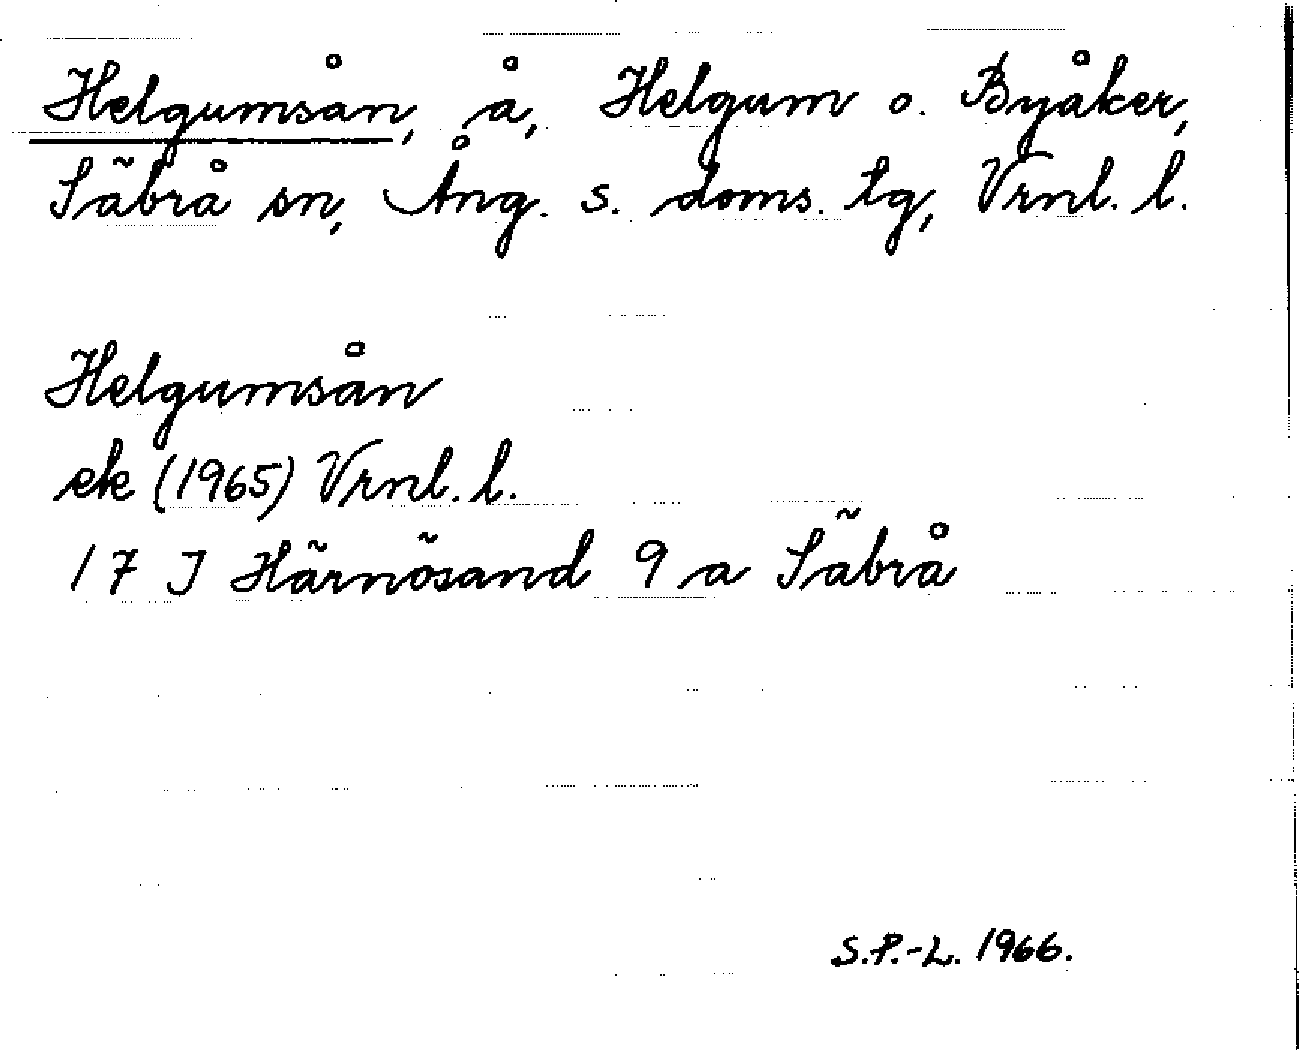 Helgumsån, å, Helgum o. Byåker,
Säbrå sn, Ång. s. doms. tg, Vrnl. l.
Helgumsån
ek (1965) Vrnl. l.
17 J Härnösand 9 a Säbrå
S.P.-L. 1966.